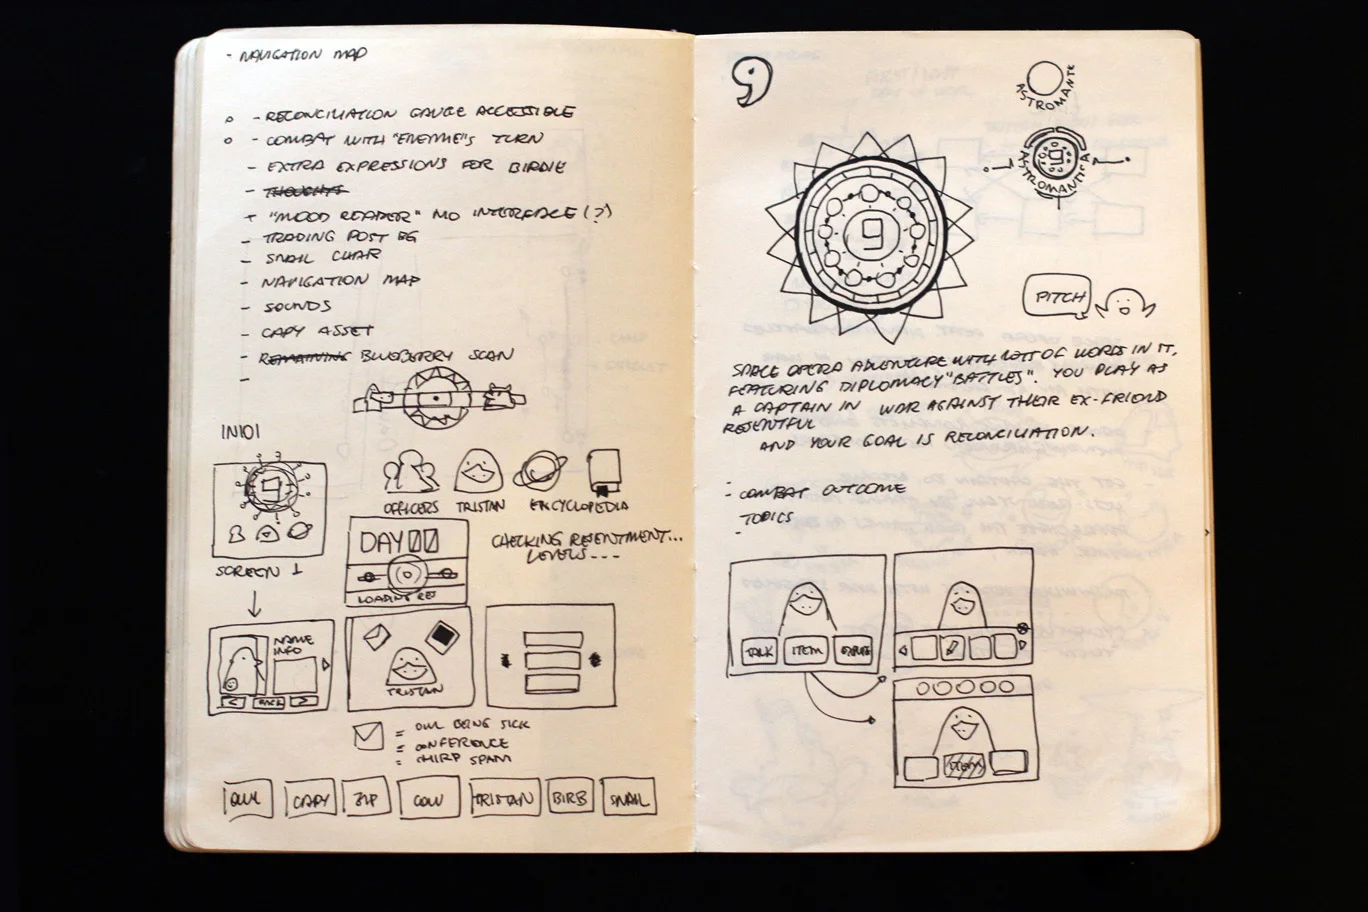 - NAVIGATION MAP
- RECONCILIATION GAUGE ACCESSIBLE
- COMBAT WITH "ENEMIE"'S TURN
- EXTRA EXPRESSIONS FOR BIRDIE
- THOUGHTS
+ "MOOD READER" NO INTERFACE (?)
- TRADING POST BG
- SNAIL CHAR
- NAVIGATION MAP
- SOUNDS
- CAPY ASSET
- REMAINING BLUEBERRY SCAN
-
OFFICERS TRISTAN ENCYCLOPEDIA
SCREEN 1
DAY 00
CHECKING RESENTMENT...
LEVELS ---
NAME
INFO
< BACK >
TRISTAN
= OWL BEING SICK
= CONFERENCE
= CHIRP SPAM
OWL CAPY COW TRISTAN BIRB SNAIL
9
ASTROMANTE
9
ASTROMANTICA
9
PITCH
SPACE OPERA ADVENTURE WITH LOT OF WORDS IN IT,
FEATURING DIPLOMACY "BATTLES". YOU PLAY AS
A CAPTAIN IN WAR AGAINST THEIR EX-FRIEND
RESENTFUL
AND YOUR GOAL IS RECONCILIATION.
- COMBAT OUTCOME
TOPICS
-
TALK ITEM
ITEM